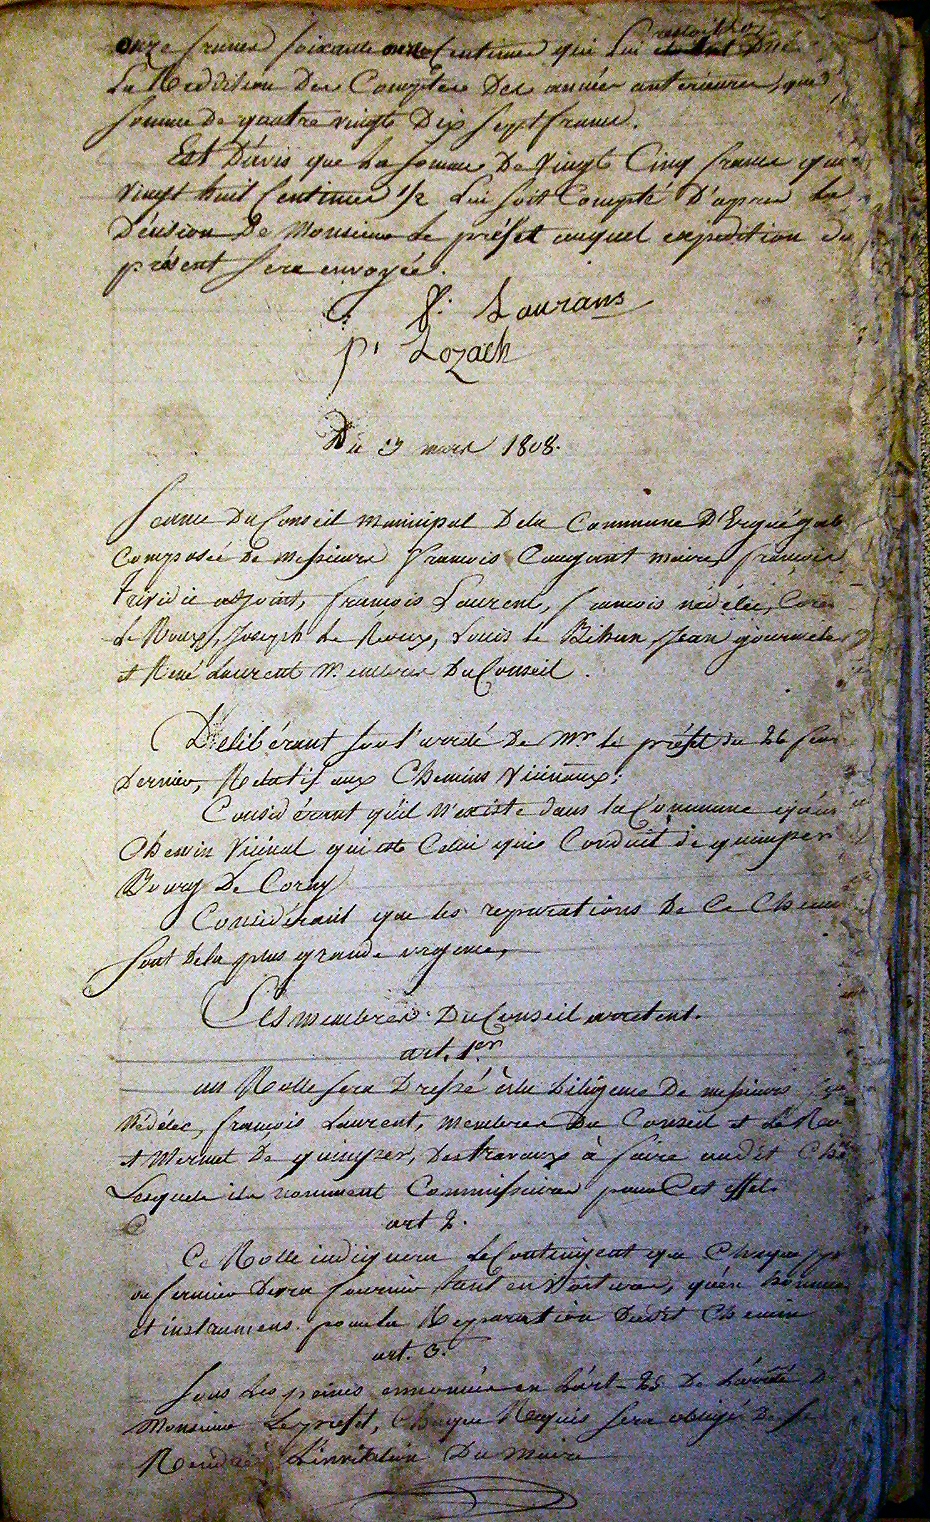 onze francs soixante onze Centimes qui lui
La Reddition des Comptes des années antérieures, que
Somme de quatre vingt Dix Sept francs.
Est D'avis que la Somme De Vingt Cinq francs
Vingt huit Centimes 1/2 Lui soit Compté D'apres La
Décision De Monsieur Le préfet auquel expédition du
présent Sera envoyée.
f. Laurans
p. Lozach
Du 3 mars 1808.
Séance Du Conseil Municipal Dela Commune D'Ergué gab
Composée De Messieurs François Caugant maire, François
adjoint, François Laurent, François nédélec,
Le Roux, Joseph Le Roux, Louis le Bihan, Jean
et René Laurent Membres Du Conseil.
Délibérant sur l'arrêté De Mr. le préfet du 26
Dernier, Relatif aux Chemins Vicinaux;
Considérant qu'il N'existe dans la Commune qu'un
Chemin Vicinal qui est Celui qui Conduit de quimper
Bourg De Coray
Considérant que les réparations De Ce Chemin
Sont Dela plus grande urgence,
Les membres Du Conseil arretent.
art. 1er
un Rolle Sera Dressé à la Diligence De Messieurs
Nédélec, François Laurent, Membres Du Conseil et Le
et Mermet De quimper, Des travaux à faire audit
Lesquels ils nomment Commissaires pour Cet effet.
art 2.
Ce Rolle indiquera Le Contingent que Chaque
ou fermier Devra fournir tant en Voitures, qu'en hommes
et instrumens pour la Réparation Dudit Chemin
art. 3.
Sous Les peines énoncées en L'art. 25 De L'arrêté D
Monsieur Le préfet, Chaque Requis Sera obligé De Se
Rendre à L'invitation Du Maire